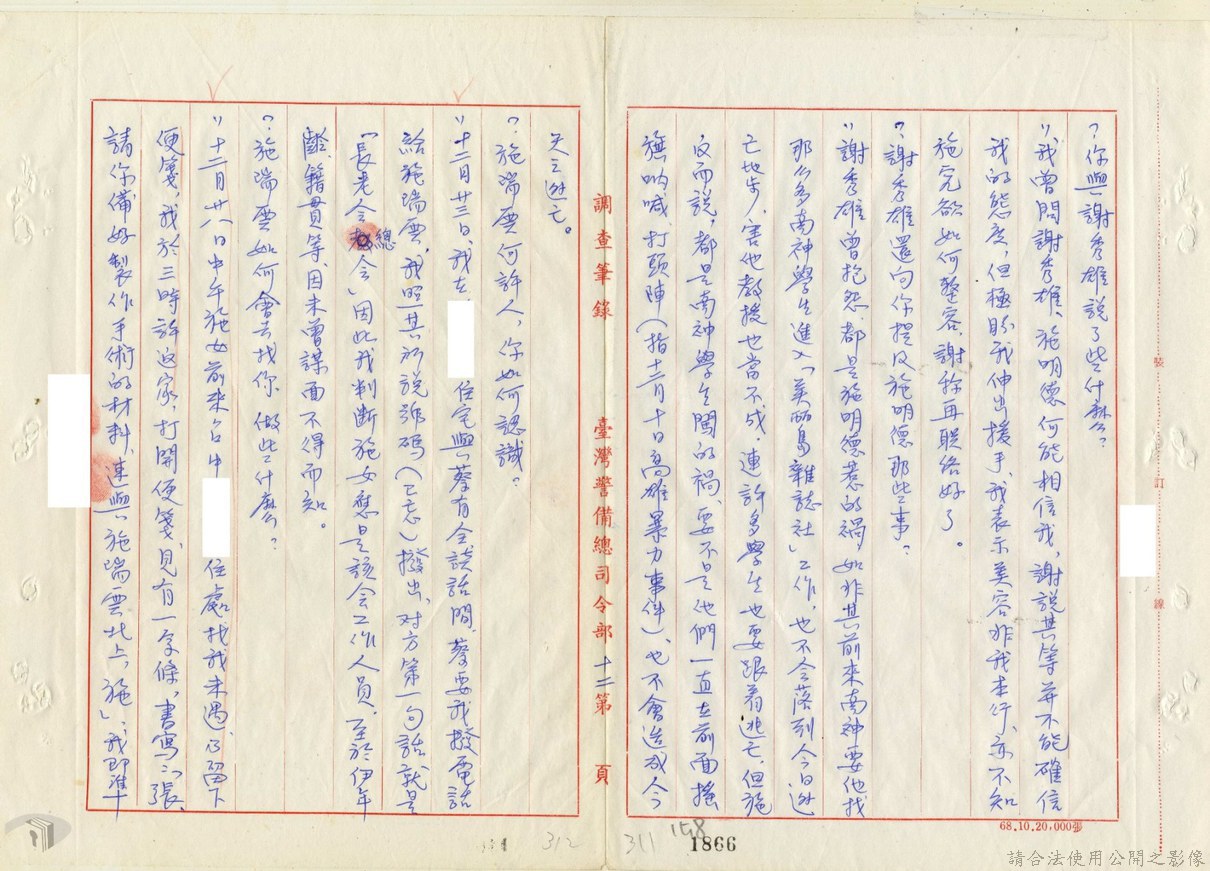 ？你與謝秀雄說了些什麼？
：我曾問謝秀雄、施明德何能相信我，謝說其等並不能確信
我的態度，但極盼我伸出援手，我表示美容非我本行，亦不知
施究欲如何整容，謝稱再聯絡好了。
？謝秀雄還向你提及施明德那些事？
：謝秀雄曾抱怨，都是施明德惹的禍，如非其前來南神要他找
那么多南神學生進入「美丽島雜誌社」工作，也不会落到今日逃
亡地步，害他教授也當不成，連許多學生也要跟着逃亡，但施
反而說，都是南神學生闖的禍，要不是他們一直在前面搖
旗吶喊打頭陣（指十二月十日高雄暴力事件），也不會造成今
調查筆錄 臺灣警備總司令部 十二第 頁
天之逃亡。
？施瑞雲何許人，你如何認識？
：十二月廿三日，我在 住宅與蔡有全談話間，蔡要我撥電話
給施瑞雲，我照其所說號碼（已忘）撥出，对方第一句話就是
「長老会總会」因此我判斷施女應是該会工作人員，至於伊年
齡、籍貫等，因未曾謀面不得而知。
？施瑞雲如何會去找你，做些什麼？
：十二月廿八日中午施女前來台中 住處找我未遇，乃留下
便箋，我於三時許返家，打開便箋，見有一字條，書寫：「張、
請你備好製作手術的材料，速與施瑞雲北上，施」，我即準
裝 訂 線
68.10.20,000張
1866
311
158
312
請合法使用公開之影像